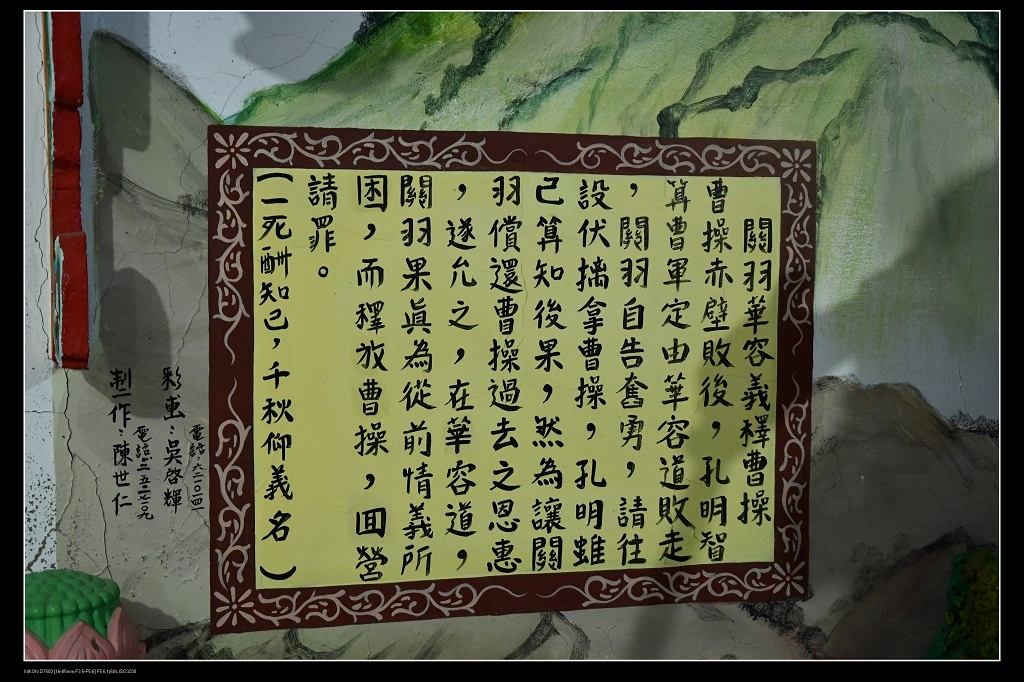 關羽華容義釋曹操
曹操赤壁敗後，孔明智
算曹軍定由華容道敗走
，關羽自告奮勇，請往
設伏擒拿曹操，孔明雖
己算知後果，然為讓關
羽償還曹操過去之恩惠
，遂允之，在華容道，
關羽果真為從前情義所
困，而釋放曹操，回營
請罪。
(一死酬知己，千秋仰義名)
彩畫：吳啓輝
製作：陳世仁